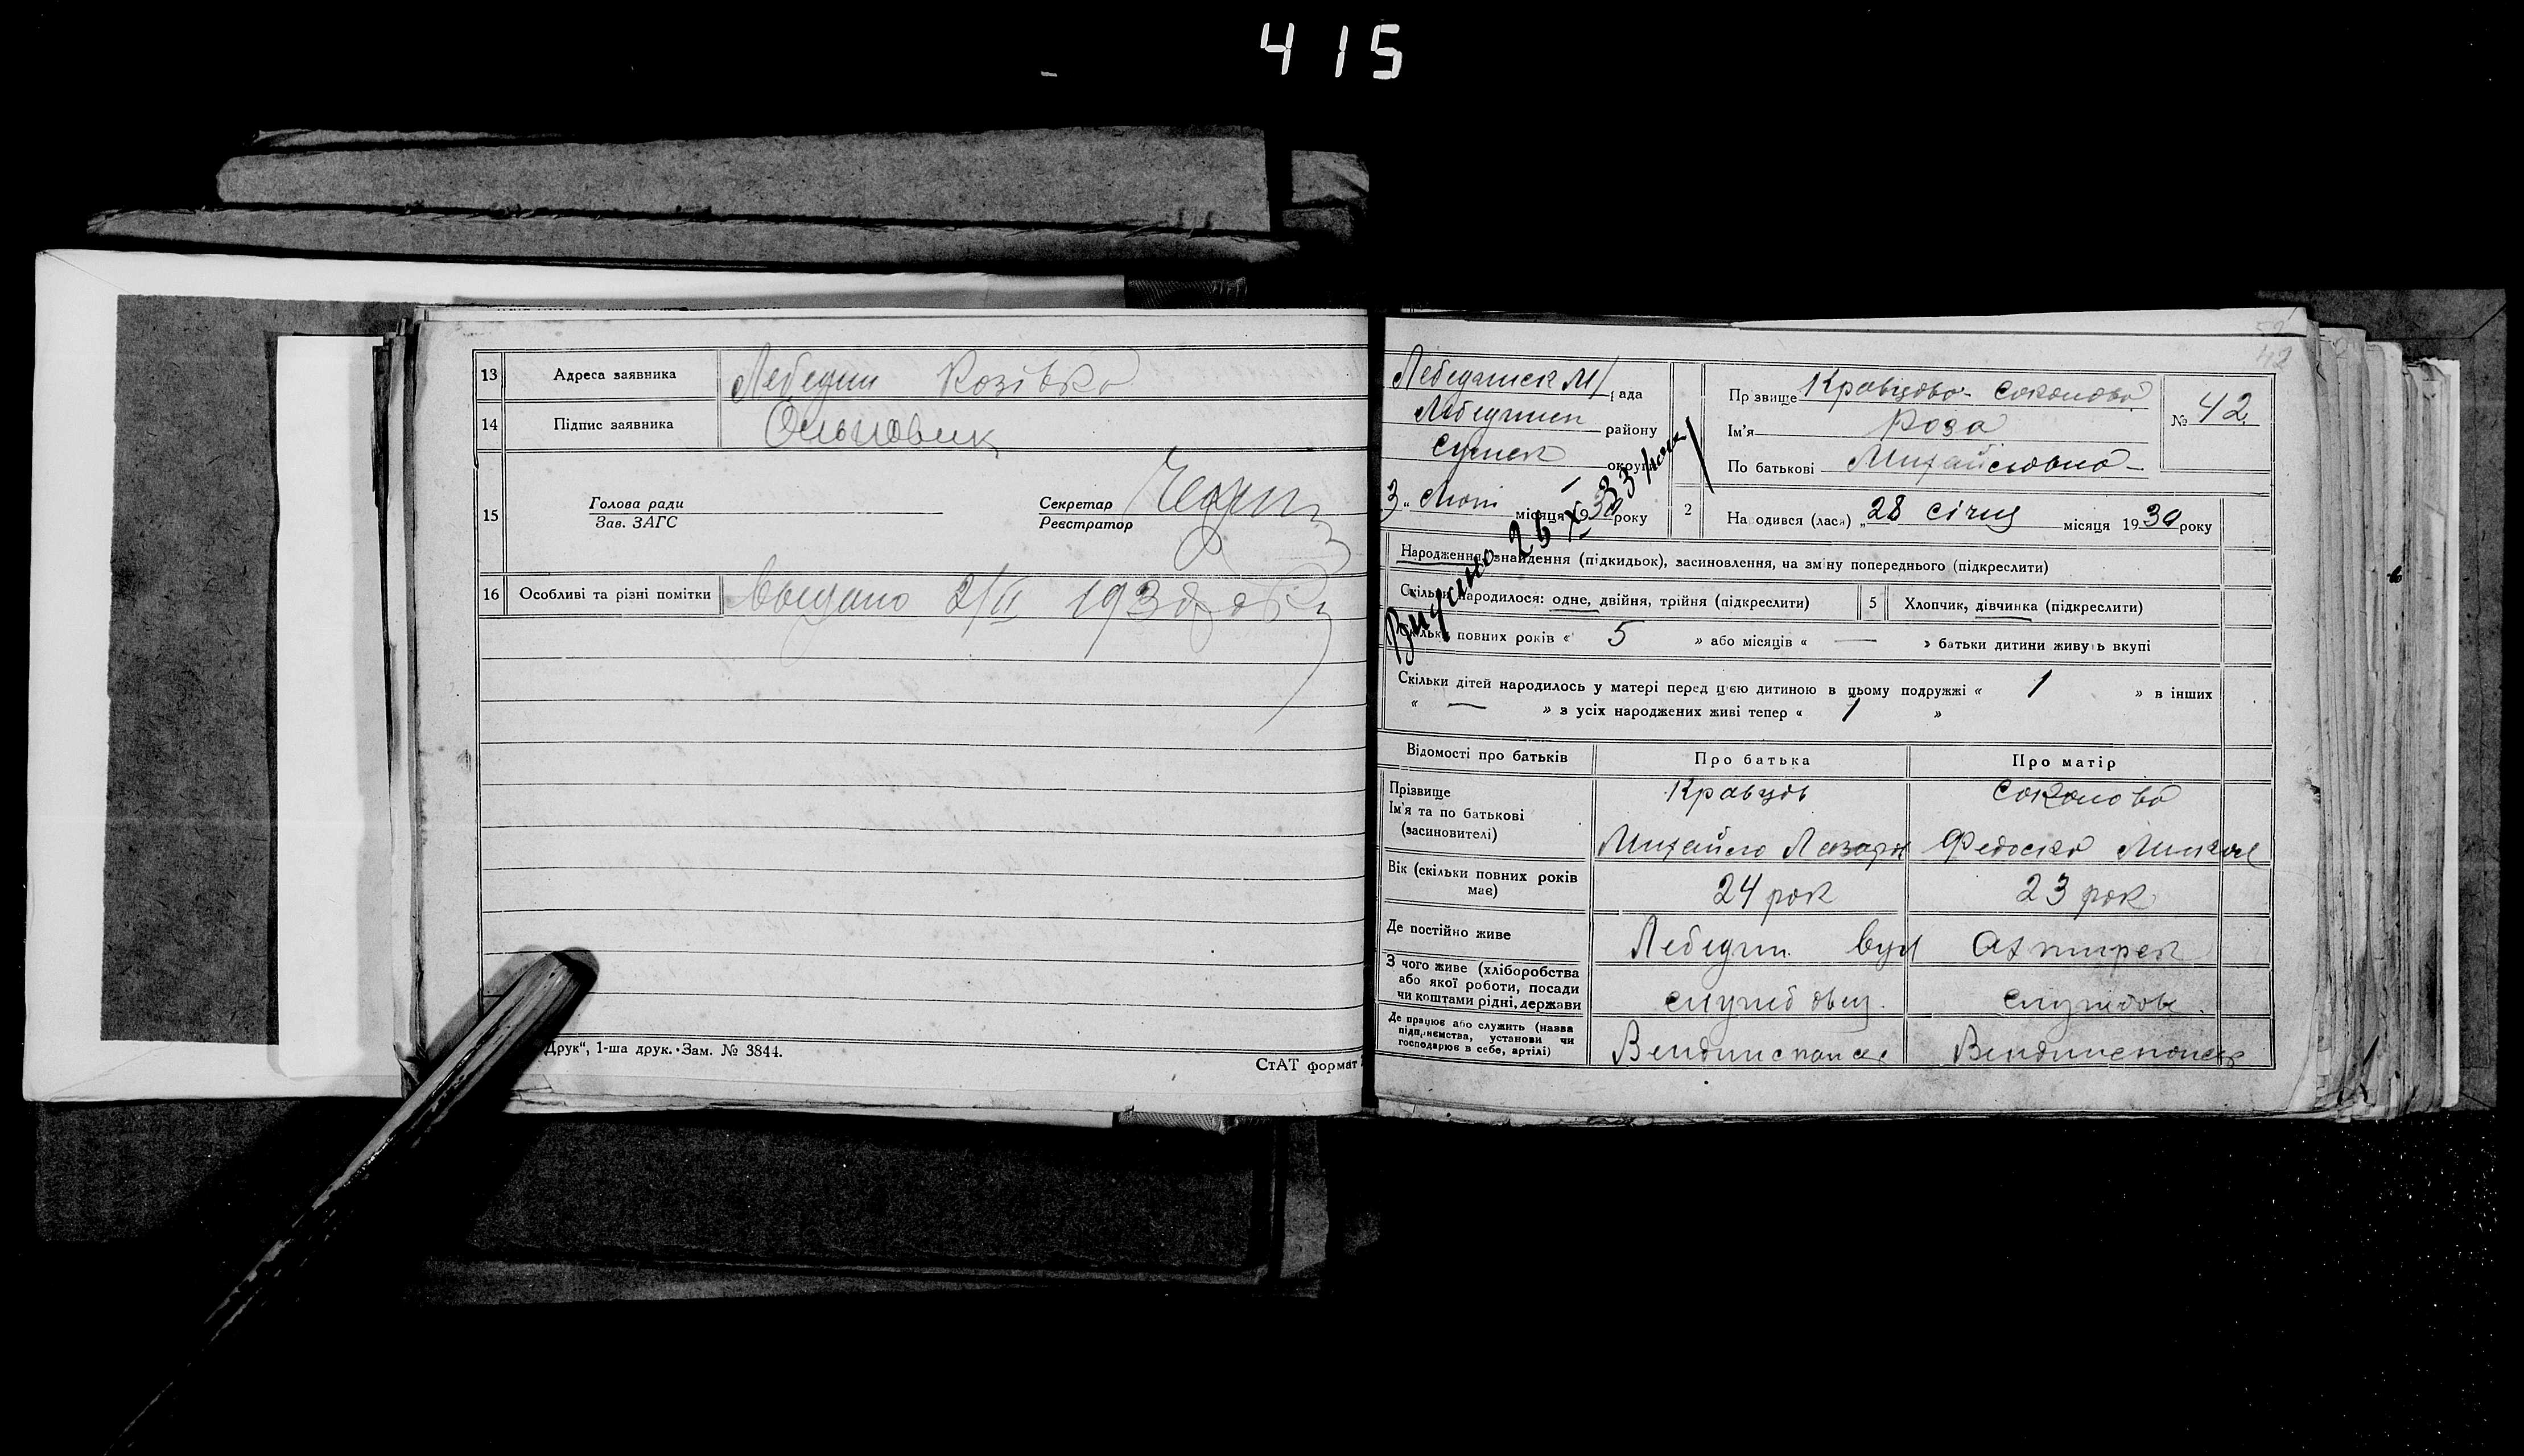 415
13 Адреса заявника Лебедин Козівка
14 Підпис заявника
15 Голова ради
Зав. ЗАГС
Секретар
Реєстратор
16 Особливі та різні помітки Выдано 2/II 1930
Друк", 1-ша друк. Зам. № 3844.
СтАТ формат
42
Лебединськ М/ рада
Лебединськ району
Сумськ округи
3 " Лют місяця 1930 року
Видано 26 X 33 року
Прізвище Кравцова-Соколова
Ім'я Роза
По батькові Михайловна
№ 42
2 Народився (лася) „28 січня місяця 1930 року
Народження, знайдення (підкидьок), засиновлення, на зміну попереднього (підкреслити)
Скільки народилося: одне, двійня, трійня (підкреслити) 5 Хлопчик, дівчинка (підкреслити)
Скільки повних років « 5 » або місяців « — » батьки дитини живуть вкупі
Скільки дітей народилось у матері перед цією дитиною в цьому подружжі « 1 » в інших
« — » з усіх народжених живі тепер « 1 »
Відомості про батьків Про батька Про матір
Прізвище Кравцов Соколова
Ім'я та по батькові
(засиновителі) Михайло Лазар Федоська Микол
Вік (скільки повних років
має) 24 рок 23 рок
Де постійно живе Лебедин вул Охтирськ
З чого живе (хліборобства
або якої роботи, посади
чи коштами рідні, держави службовець службов
Де працює або служить (назва
підприємства, установи чи
господарює в себе, артілі)